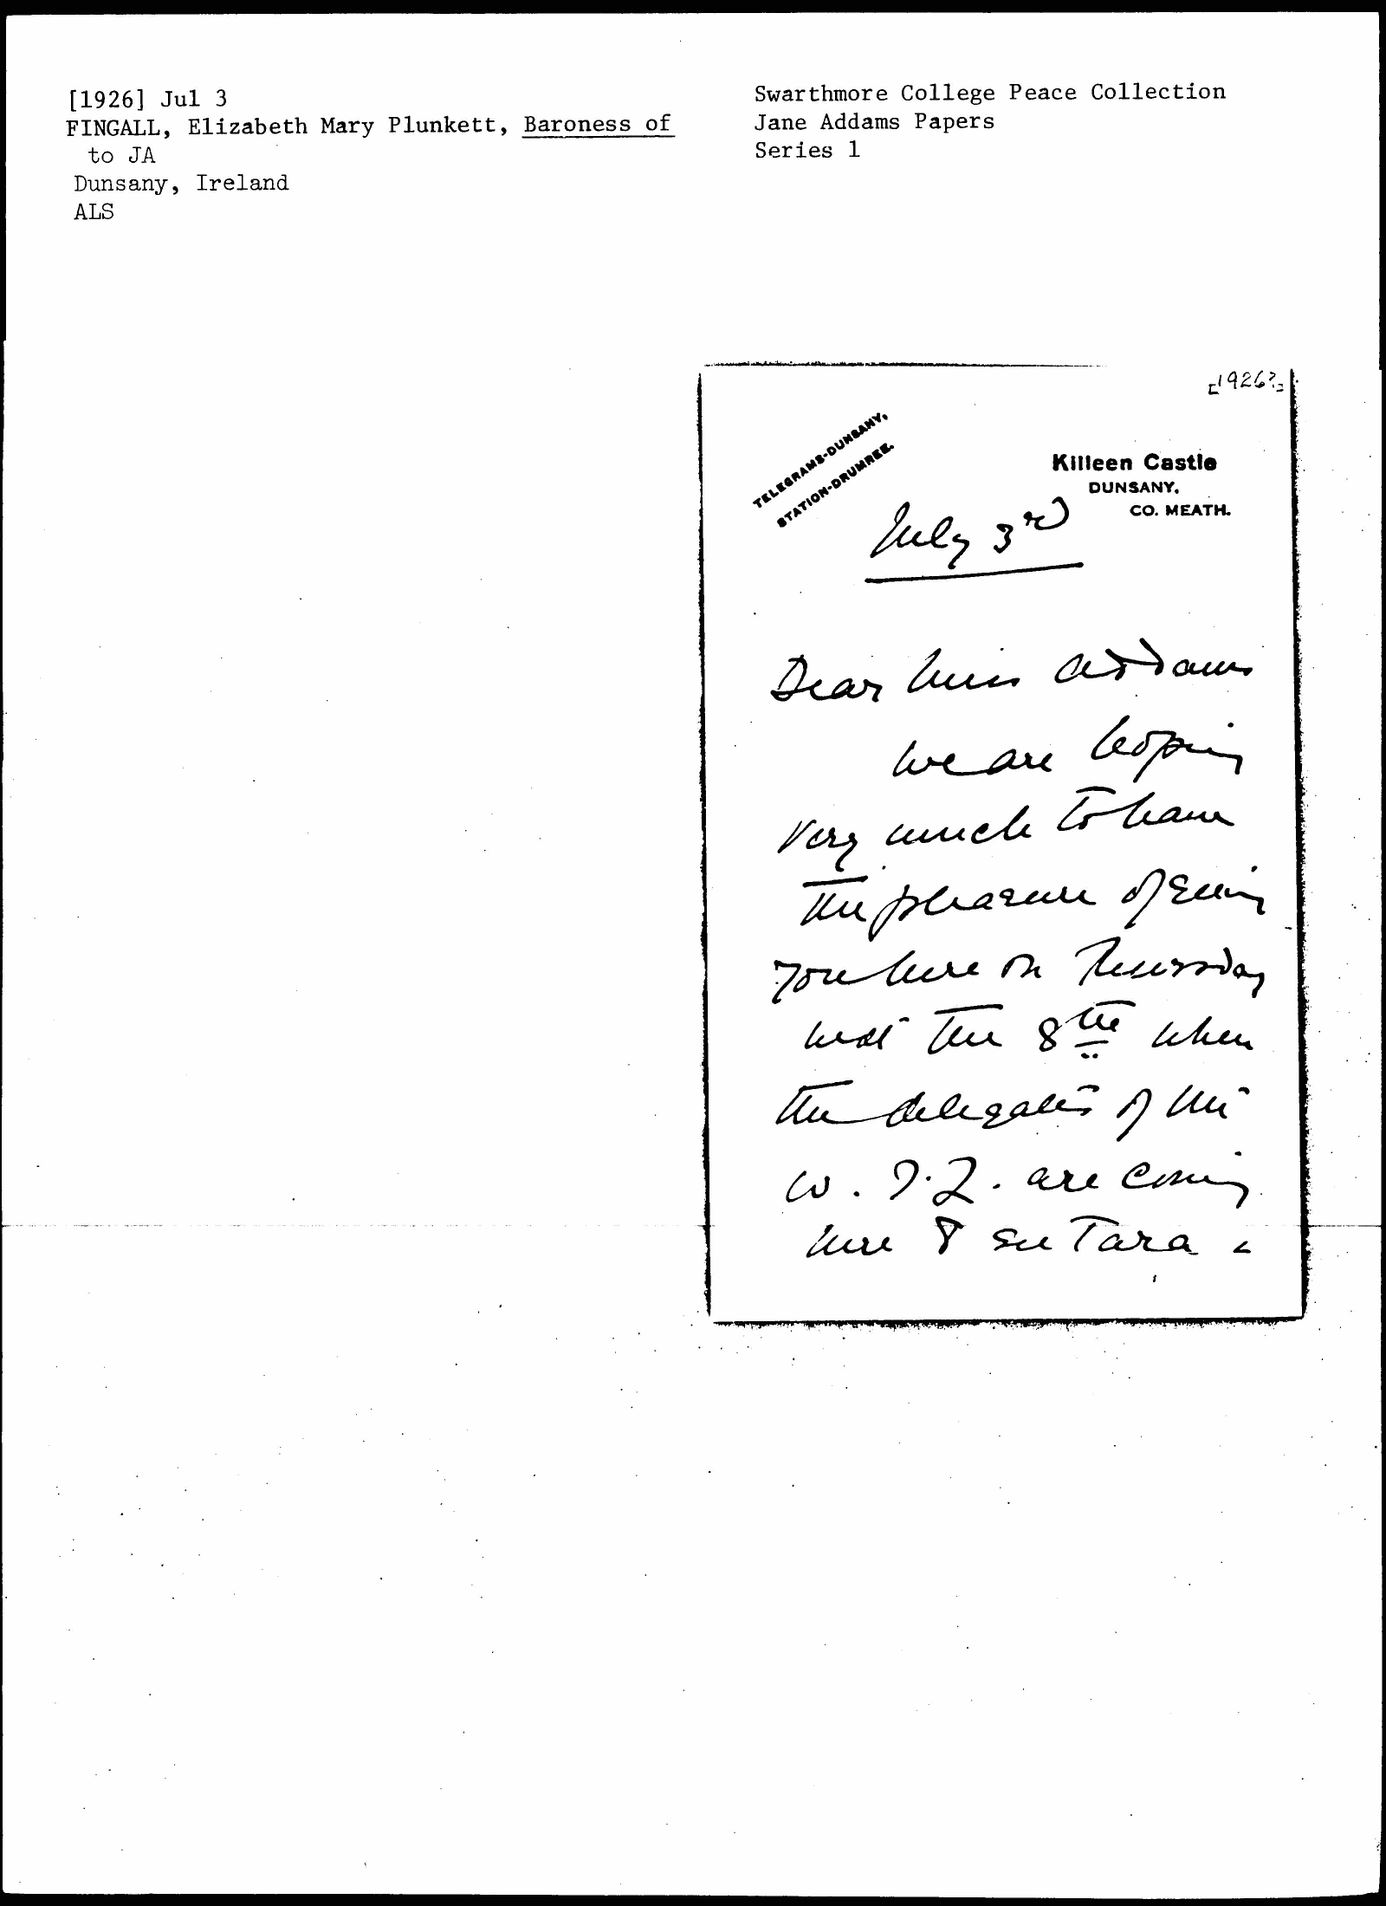 [1926] Jul 3
FINGALL, Elizabeth Mary Plunkett, Baroness of
to JA
Dunsany, Ireland
ALS
Swarthmore College Peace Collection
Jane Addams Papers
Series 1
[1926?]
TELEGRAMS-DUNSANY,
STATION-DRUMREE.
Killeen Castle
DUNSANY,
CO. MEATH.
July 3rd
Dear Miss Addams
We are hoping
very much to have
the pleasure of seeing
you here on Thursday
next the 8th when
the delegates of the
W. I. L. are coming
here & see Tara